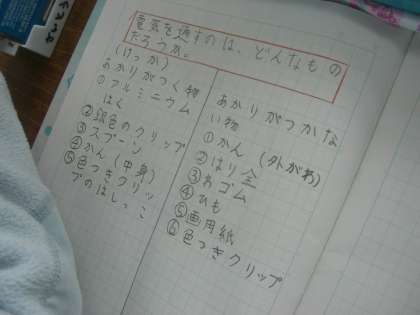 電気を通すのは、どんなもの
だろうか。
(けっか)
あかりがつく物
①アルミニウム
はく
②銀色のクリップ
③スプーン
④かん(中身)
⑤色つきクリッ
プのはしっこ
あかりがつかな
い物
①かん(外がわ)
②はり金
③わゴム
④ひも
⑤画用紙
⑥色つきクリップ